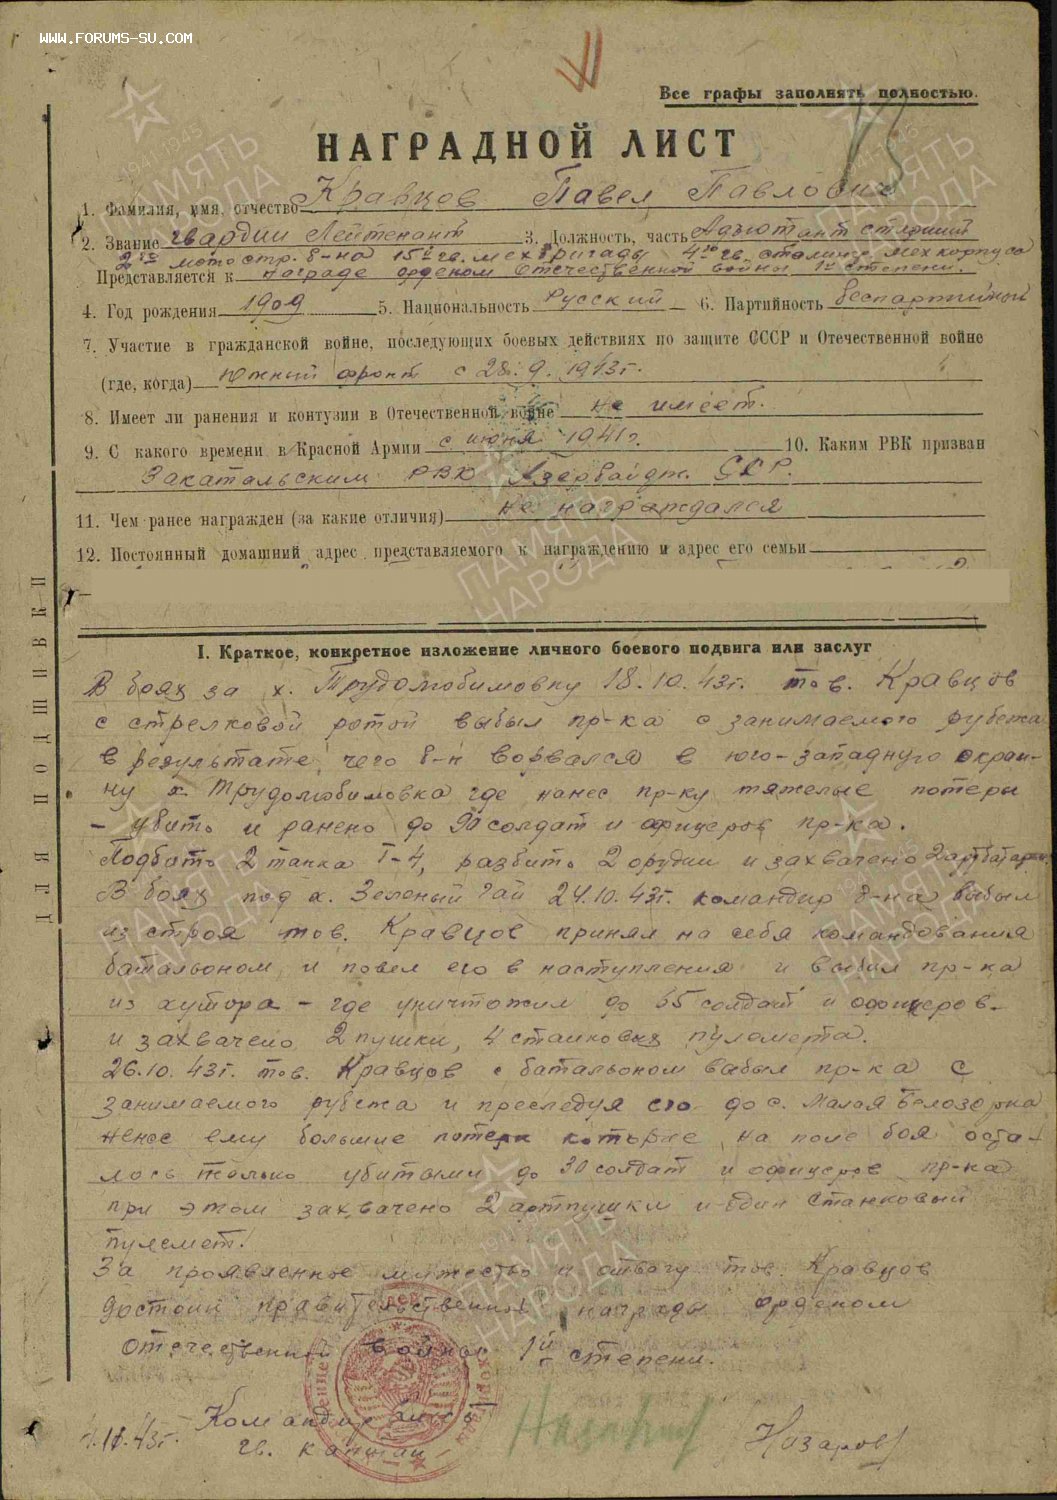 WWW.FORUMS-SU.COM
Все графы заполнять полностью.
НАГРАДНОЙ ЛИСТ
1. Фамилия, имя, отчество Кравцов Павел Павлович
2. Звание гвардии Лейтенант 3. Должность, часть Адъютант старший
2го мотостр. б-на 15й гв. мехбригады 4го гв. сталинг. мехкорпуса
Представляется к награде орденом Отечественной войны 1й степени.
4. Год рождения 1909 5. Национальность Русский 6. Партийность беспартийный
7. Участие в гражданской войне, последующих боевых действиях по защите СССР и Отечественной войне
(где, когда) Южный фронт с 28.9.1943г.
8. Имеет ли ранения и контузии в Отечественной войне не имеет.
9. С какого времени в Красной Армии с июня 1941г. 10. Каким РВК призван
Закатальским РВК Азербайдж. ССР.
11. Чем ранее награжден (за какие отличия) не награждался
12. Постоянный домашний адрес представляемого к награждению и адрес его семьи
ДЛЯ ПОДШИВКИ
I. Краткое, конкретное изложение личного боевого подвига или заслуг
В боях за х. Трудолюбимовку 18.10.43г. тов. Кравцов
с стрелковой ротой выбил пр-ка с занимаемого рубежа
в результате чего б-н ворвался в юго-западную окраи-
ну х. Трудолюбимовка где нанес пр-ку тяжелые потеры
– убито и ранено до 90 солдат и офицеров пр-ка.
Подбито 2 танка Т-4, разбито 2 орудии и захвачено 2 артбатареи.
В боях под х. Зеленый Гай 24.10.43г. командир б-на выбыл
из строя тов. Кравцов принял на себя командования
батальоном и повел его в наступления и выбил пр-ка
из хутора – где уничтожил до 65 солдат и офицеров
и захвачено 2 пушки, 4 станковых пулемета.
26.10.43г. тов. Кравцов с батальоном выбил пр-ка с
занимаемого рубежа и преследуя его до с. Малая Белозерка
нанес ему большие потери которые на поле боя оста-
лось только убитыми до 30 солдат и офицеров пр-ка
при этом захвачено 2 артпушки и один станковый
пулемет.
За проявленное мужество и отвагу тов. Кравцов
достоин правительственной награды орденом
Отечественной войны 1й степени.
Командир
гв. капитан Назаров
.11.43г.
ПАМЯТЬ НАРОДА